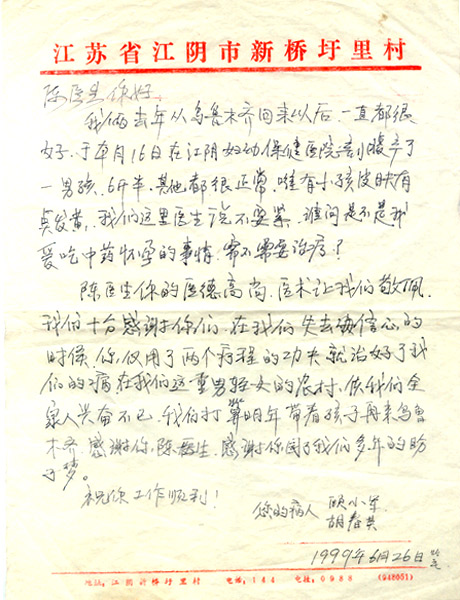 江苏省江阴市新桥圩里村
陈医生你好:
我俩去年从乌鲁木齐回来以后,一直都很
好,于本月16日在江阴妇幼保健医院剖腹产了
一男孩,6斤半,其他都很正常,唯有小孩皮肤有
点发黄,我们这里医生说不要紧,请问是不是我
爱吃中药怀孕的事情,需不需要治疗?
陈医生你的医德高尚,医术让我们敬佩,
我们十分感谢你们,在我们失去信心的
时候,你仅用了两个疗程的功夫就治好了我
们的病在我们这重男轻女的农村,使我们全
家人兴奋不已,我们打算明年带着孩子再来乌鲁
木齐,感谢你,陈医生,感谢你圆了我们多年的盼
子梦。
祝你工作顺利!
您的病人 顾小军
胡春英
1999年6月26日
地址:江阴新桥圩里村 电话:144 电挂:0988 (948051)